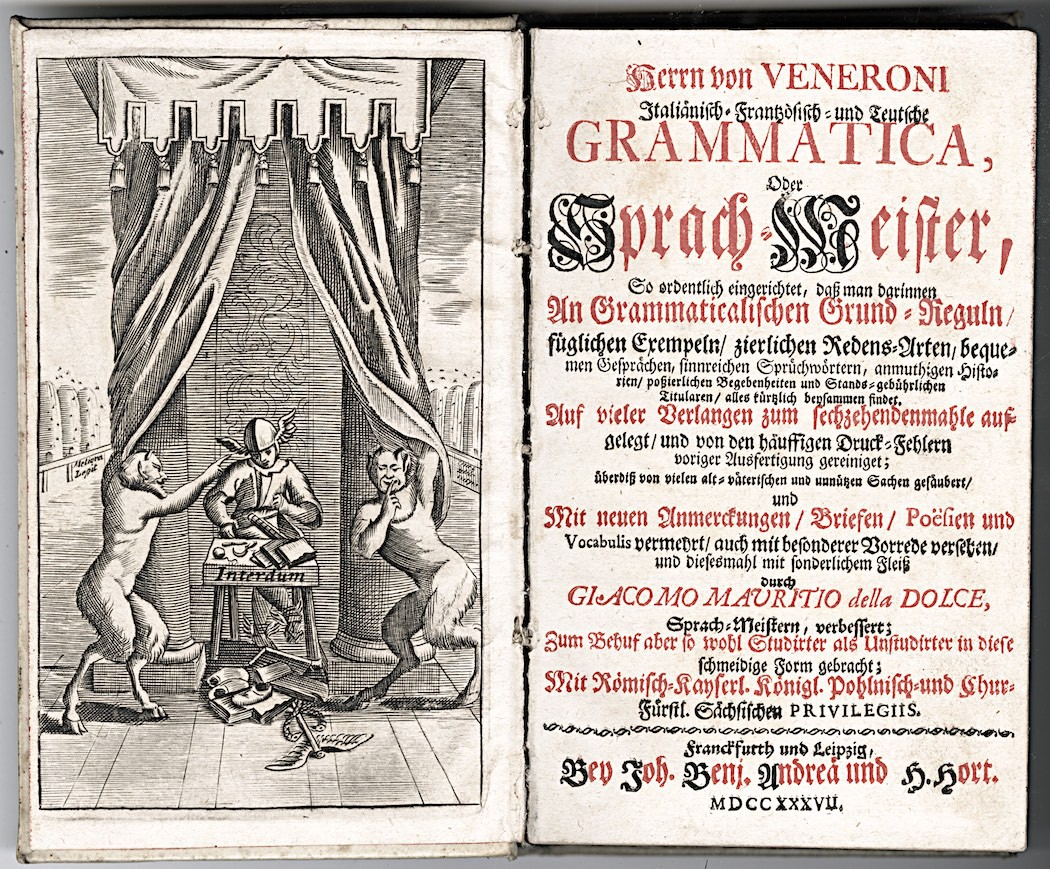 Meliora
Lapit
Interdum
Herrn von VENERONI
Italiänisch-Frantzösisch-und Teutsche
GRAMMATICA,
Oder
Sprach-Meister,
So ordentlich eingerichtet, daß man darinnen
An Grammaticalischen Grund-Reguln/
füglichen Exempeln/ zierlichen Redens-Arten, beque-
men Gesprächen, sinnreichen Sprüchwörtern, anmuthigen Histo-
rien/ poßierlichen Begebenheiten und Stands-gebührlichen
Titularen/ alles kürtzlich beysammen findet,
Auf vieler Verlangen zum sechzehendenmahle auf-
gelegt/ und von den häuffigen Druck-Fehlern
voriger Ausfertigung gereiniget;
überdiß von vielen alt-väterischen und unnützen Sachen gesäubert/
und
Mit neuen Anmerckungen/ Briefen/ Poësien und
Vocabulis vermehrt/ auch mit besonderer Vorrede versehen/
und diesesmahl mit sonderlichem Fleiß
durch
GIACOMO MAURITIO della DOLCE,
Sprach-Meistern, verbessert;
Zum Behuf aber so wohl Studirter als Unstudirter in diese
schmeidige Form gebracht;
Mit Römisch-Kayserl. Königl. Pohlnisch-und Chur-
Fürstl. Sächsischen PRIVILEGIIS.
Franckfurth und Leipzig,
Bey Joh. Benj. Andreä und H. Hort.
MDCCXXXVII.